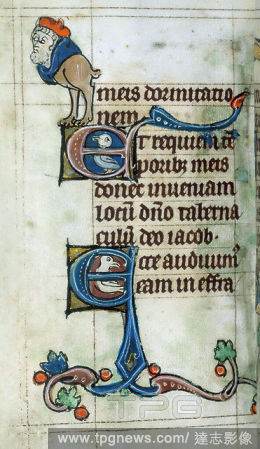 meis dormitatio
nem
Et requiem tē
poribz meis
donec inveniam
locū dño taberna
culū deo iacob·
Ecce audivim᷒
eam in effra
TPG
www.tpgnews.com/ 達志影像